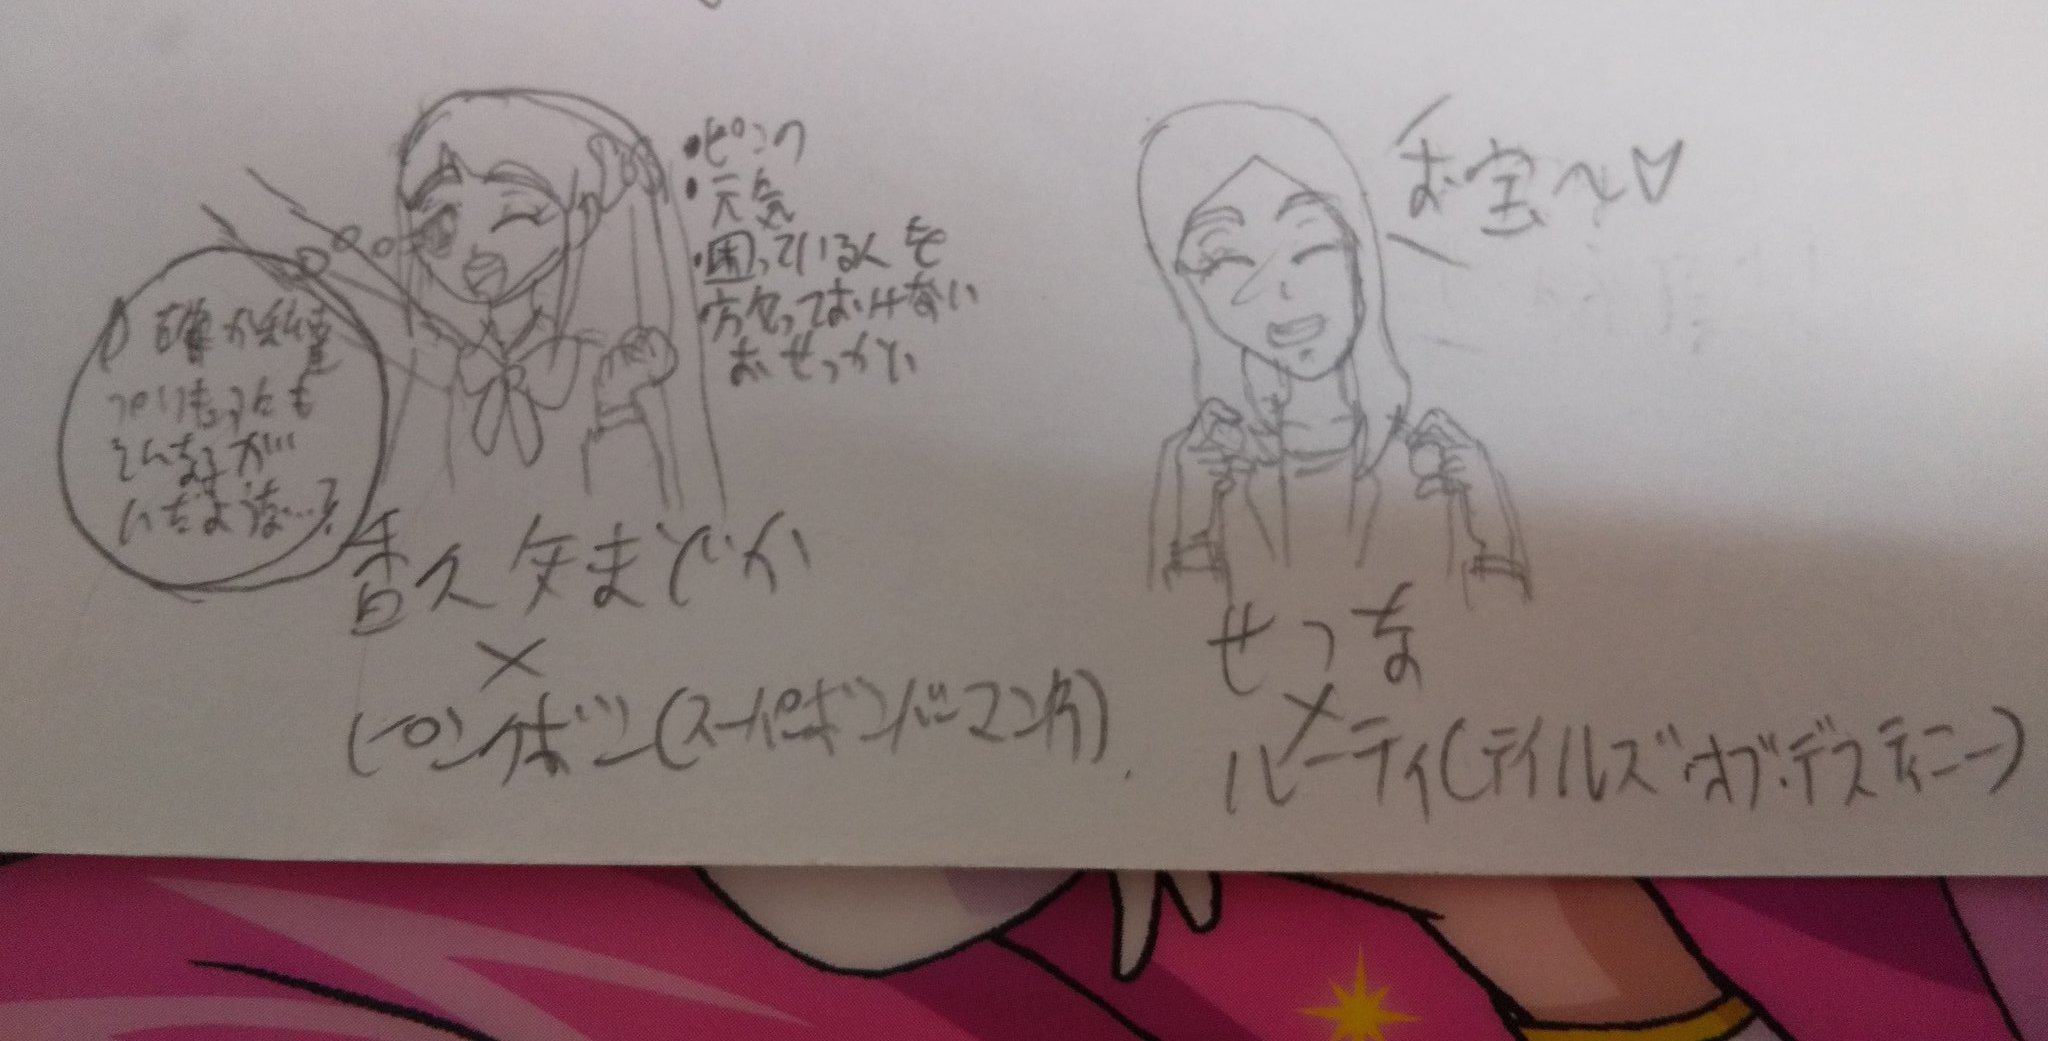 ・ピンク
・元気
・困っている人を
方欠っておけない
おせっかい
確か私達
プリキュアにも
そんな子が…
いたような…?
香久矢まどか
×
ピンクボン(スーパーボンバーマンR)
お宝〜♡
せつな
×
ルーティ(テイルズオブ・デスティニー)